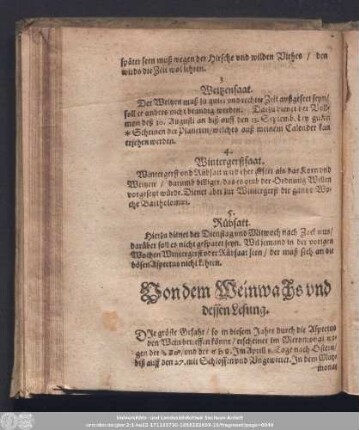 später sein muß wegen der Hirsche und wilden Viehes / den
wirds die Zeit wol lehren.
3
Weitzensaat.
Der Weitzen muß zu guter und rechter Zeit außgeseet seyn/
soll er anders nicht brandig werden. Darzu dienet der Voll-
mon deß 30. Augusti an biß auff den 13. Septemb. bey guten
Scheinen der Planeten/welches auß meinem Calender kan
ersehen werden.
4.
Wintergerstsaat.
Wintergerst und Rübsatt wird eher geseet als das Korn und
Weitzen / darumb billiger, das es umb der Ordnung Willen
vorgesetzt würde. Dienet aber zur Wintergerst die gantze Wo-
che Bartholomei.
5.
Rübsatt.
Hierzu dienet der Dienstag und Mitwoch nach
darüber soll es nicht gespatet seyn. Wil jemand in der vorigen
Wochen Wintergerst oder Rübsaat seen / der muß sich an die
bösen Aspectus nicht kehren.
Von dem Weinwachs vnd
dessen Lesung.
DIe gröste Gefahr / so in diesem Jahre durch die Aspecten
den Wein betreffen könte / erscheinet im Mertzmonat we-
gen der und der Im April 8. Tage nach Ostern/
biß auff den 27. mit Schlossen und Ungewitter. In dem Mey-
monat